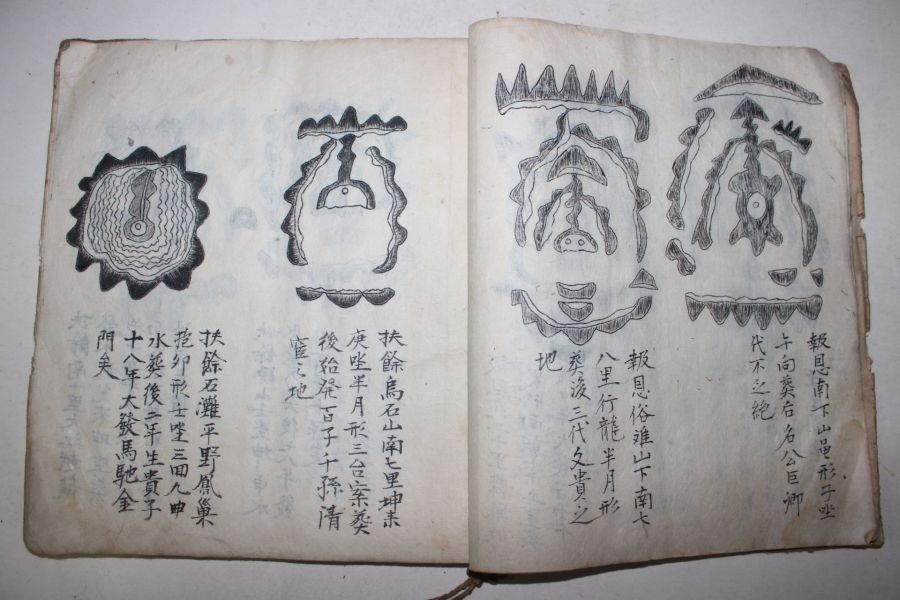 報恩南下山黽形子坐
午向葬后名公巨卿
代不之絶
報恩俗难山下南七
八里行龍半月形
葬後三代文貴之
地
扶餘烏石山南七里坤未
庚坐半月形三台案葬
後始発百子千孫淸
宦之地
扶餘石灘平野鳳巢
抱卵形壬坐三回九曲
水葬後二年生貴子
十八年大發馬馳金
門矣